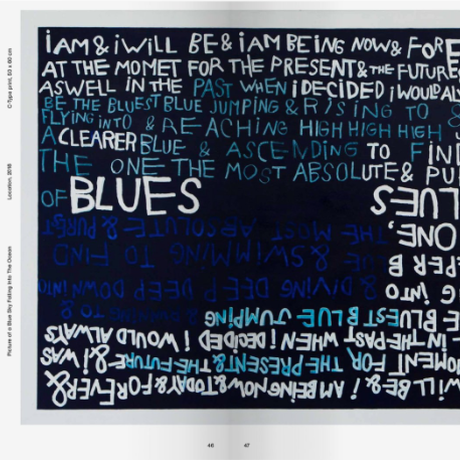 C-Type print, 50 x 60 cm
Location, 2018
Picture of a Blue Sky Falling Into The Ocean
iAM & iWiLL BE & iAM BEiNG NOW & FORE
AT THE MOMET FOR THE PRESENT & THE FUTURE
ASWELL iN THE PAST WHEN iDECiDED iWOULD
BE THE BLUEST BLUE JUMPiNG & RiSiNG TO &
FLYiNG iNTO & REACHiNG HiGH HiGH HiGH
A CLEARER BLUE & ASCENDiNG TO FiN
THE ONE THE MOST ABSOLUTE & PU
OF BLUES
WiLL BE & i AM BEiNG NOW & TODAY & FOREVER &
MOMENT FOR THE PRESENT & THE FUTURE & i WAS
iN THE PAST WHEN i DECiDED i WOULD ALWAYS
E BLUEST BLUE JUMPiNG
G iNTO & DiViNG DEEP DEEP DOWN iNTO
PER B & SWiMMiNG TO FiND
ONE, THE MOST ABSOLUTE & PUREST
LUES
46 47